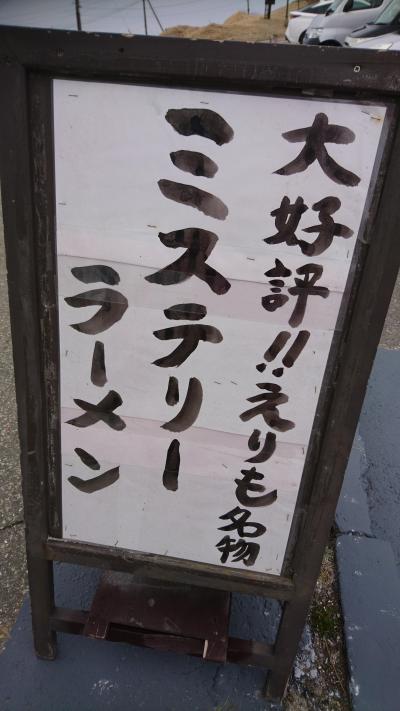 大好評!!えりも名物
ミステリー
ラーメン